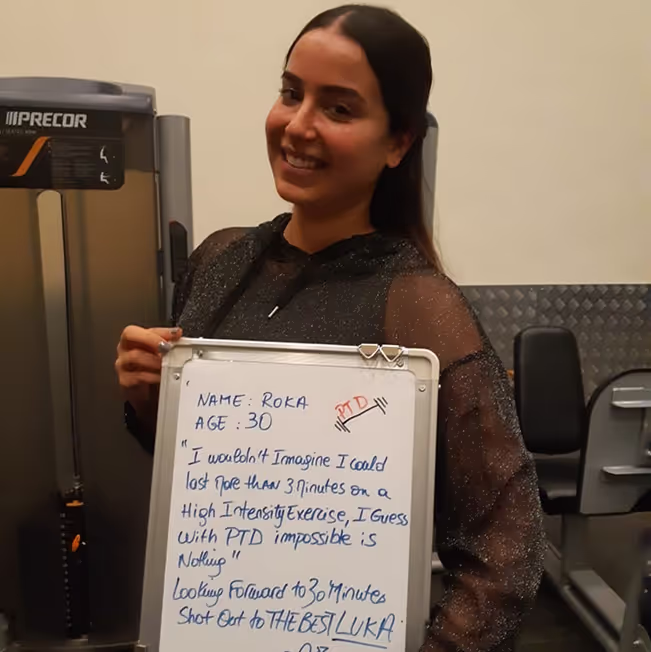 PRECOR
NAME: ROKA
PTD
AGE: 30
"I wouldn't Imagine I Could
last More than 3 Minutes on a
High Intensity Exercise, I Guess
with PTD impossible is
Nothing"
Looking Forward to 30 Minutes
Shot Out to THE BEST LUKA